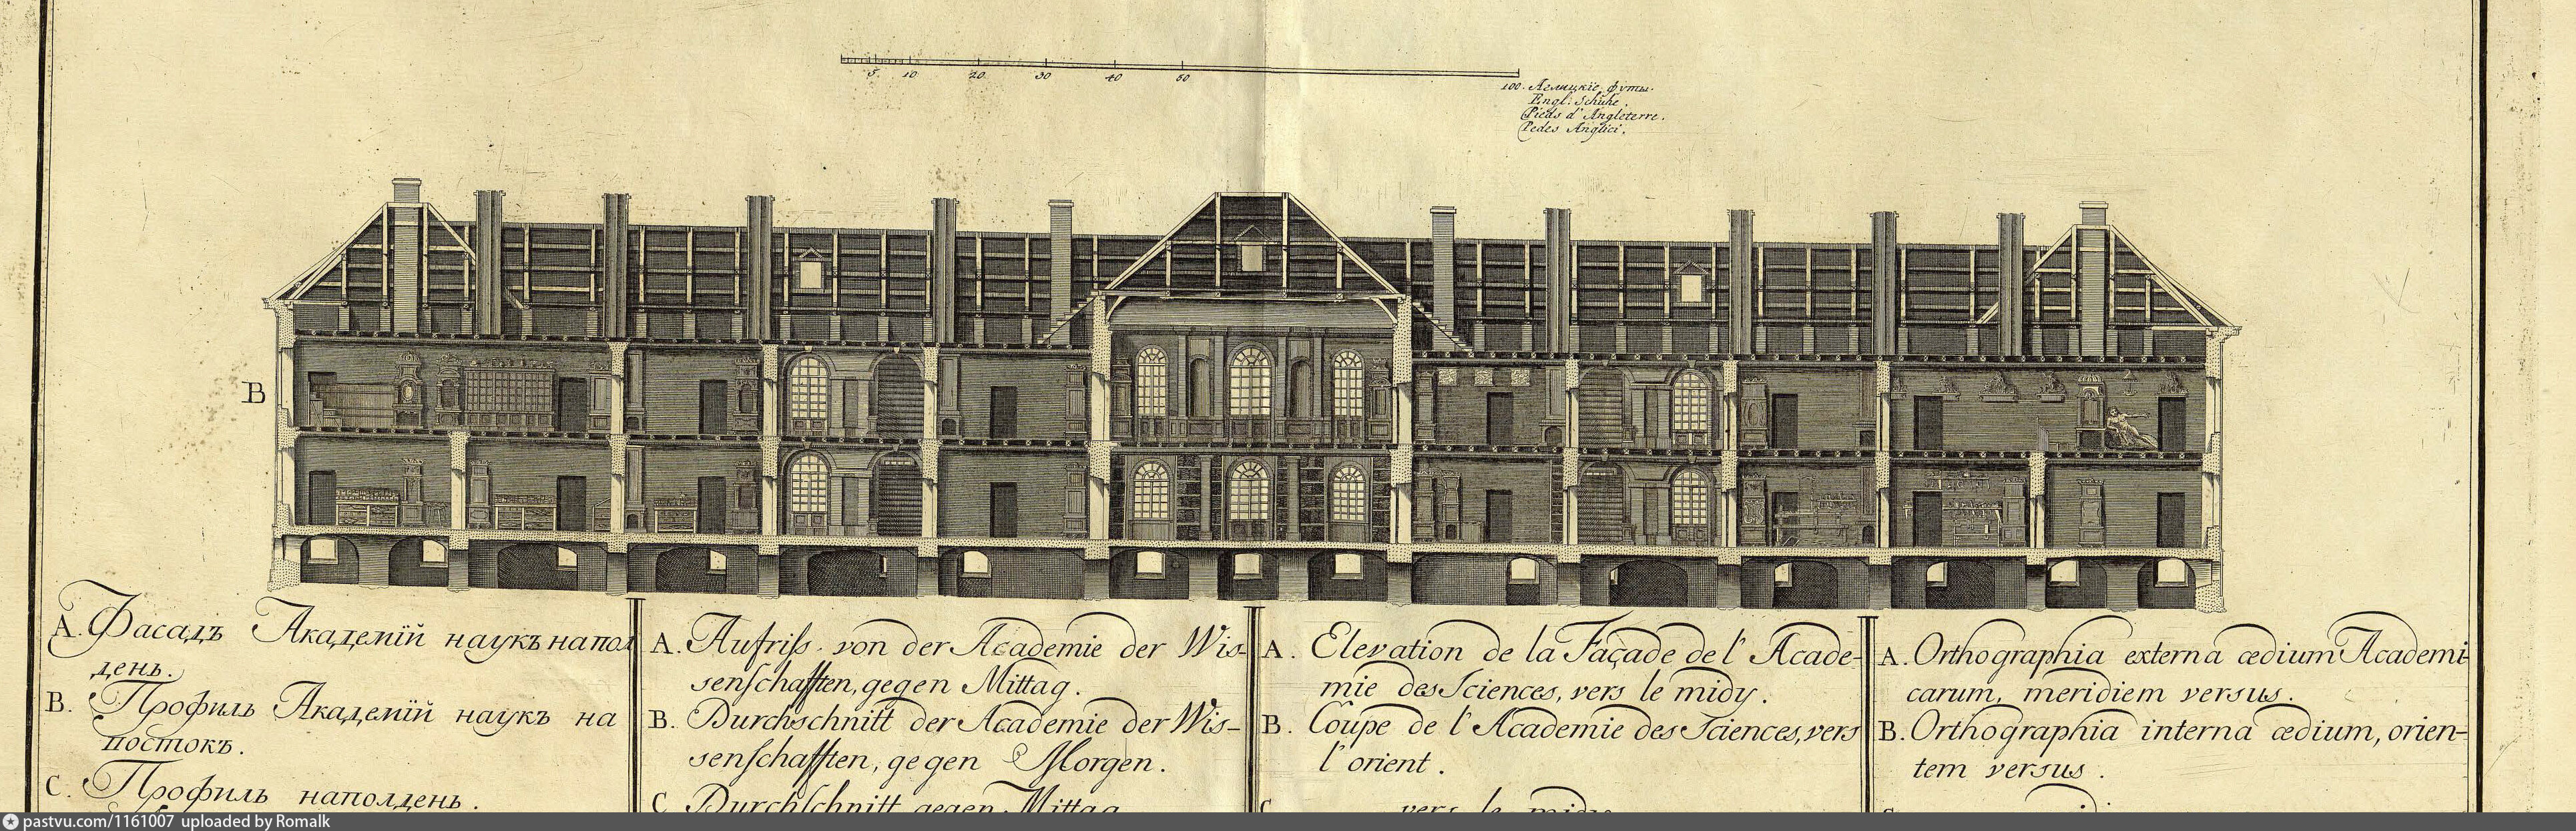 5. 10 20. 30 40 50 100. Аглицкїе футы.
Engl: Schuhe.
Pieds d'Angleterre.
Pedes Anglici.
B
A. Фасадъ Академїй наукъ напол
день.
B. Профиль Академїй наукъ на
востокъ.
C. Профиль наполдень.
A. Aufriſs von der Academie der Wis-
senſchafften, gegen Mittag.
B. Durchschnitt der Academie der Wis-
senſchafften, gegen Morgen.
C. Durchſchnitt gegen Mittag
A. Elevation de la Façade de l'Acade-
mie des Sciences, vers le midy.
B. Coupe de l'Academie des Sciences, vers
l'orient.
C vers le midy
A. Orthographia externa ædium Academi
carum, meridiem versus.
B. Orthographia interna ædium, orien-
tem versus.
pastvu.com/1161007 uploaded by Romalk